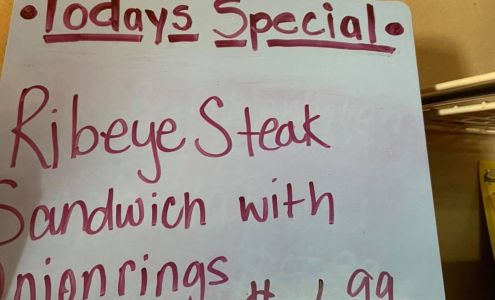 • Todays Special •
Ribeye Steak
Sandwich with
Onion rings